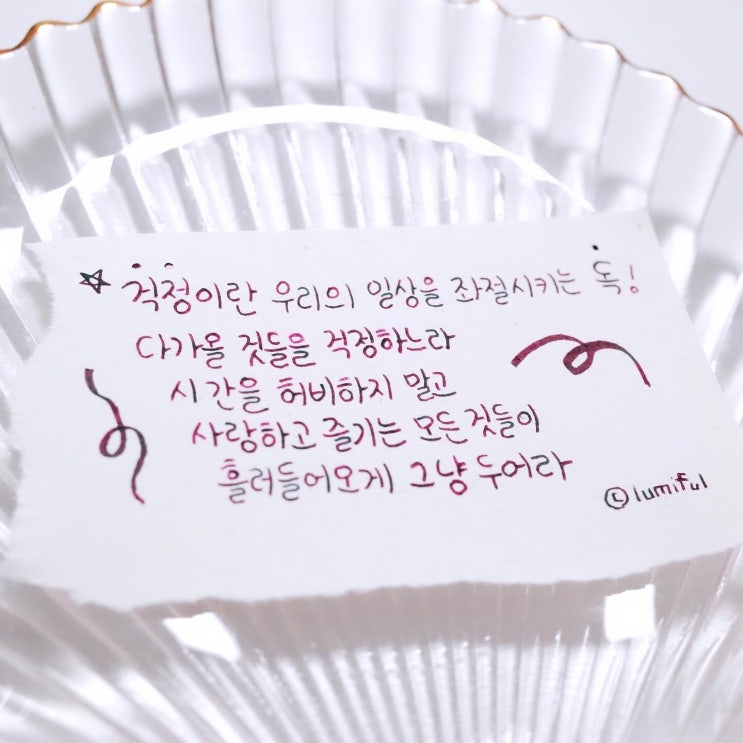 ☆ 걱정이란 우리의 일상을 좌절시키는 독!
다가올 것들을 걱정하느라
시간을 허비하지 말고
사랑하고 즐기는 모든것들이
흘러들어오게 그냥 두어라
ⓛ lumiful